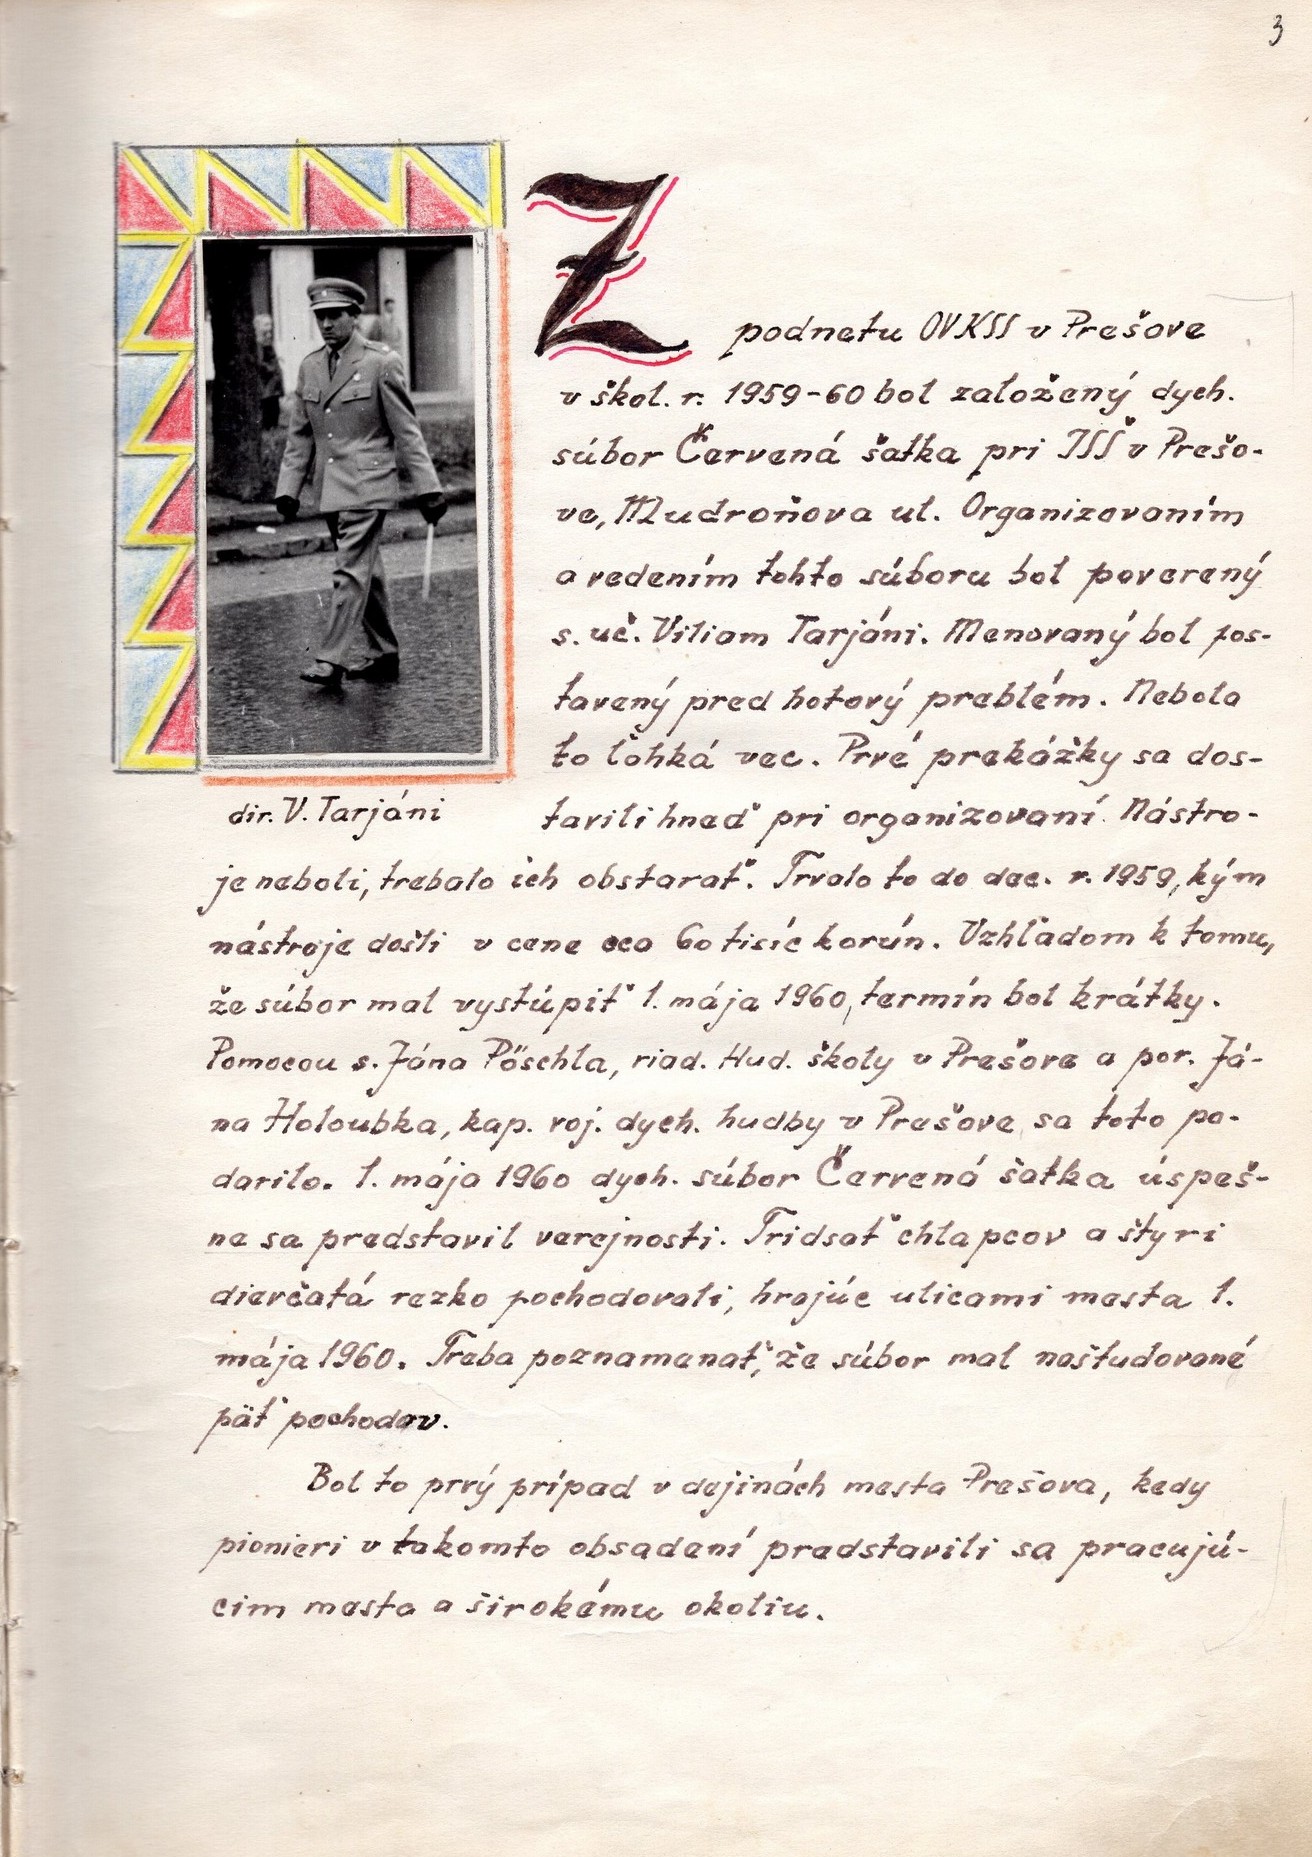 3
Z
podnetu OVKSS v Prešove
v škol. r. 1959-60 bol založený dych.
súbor Červená šatka pri JSŠ v Prešo-
ve, Mudroňova ul. Organizovaním
a vedením tohto súboru bol poverený
s. uč. Viliam Tarjáni. Menovaný bol pos-
tavený pred hotový problém. Nebola
to ľahká vec. Prvé prekážky sa dos-
tavili hneď pri organizovaní. Nástro-
dir. V. Tarjáni
je neboli, trebalo ich obstarať. Trvalo to do dec. r. 1959, kým
nástroje došli v cene cca 60 tisíc korún. Vzhľadom k tomu,
že súbor mal vystúpiť 1. mája 1960, termín bol krátky.
Pomocou s. Jána Pöschla, riad. Hud. školy v Prešove a por. Já-
na Holoubka, kap. voj. dych. hudby v Prešove sa toto po-
darilo. 1. mája 1960 dych. súbor Červená šatka úspeš-
ne sa predstavil verejnosti. Tridsať chlapcov a štyri
dievčatá rezko pochodovali, hrajúc ulicami mesta 1.
mája 1960. Treba poznamenať, že súbor mal naštudované
päť pochodov.
Bol to prvý prípad v dejinách mesta Prešova, kedy
pionieri v takomto obsadení predstavili sa pracujú-
cim mesta a širokému okoliu.